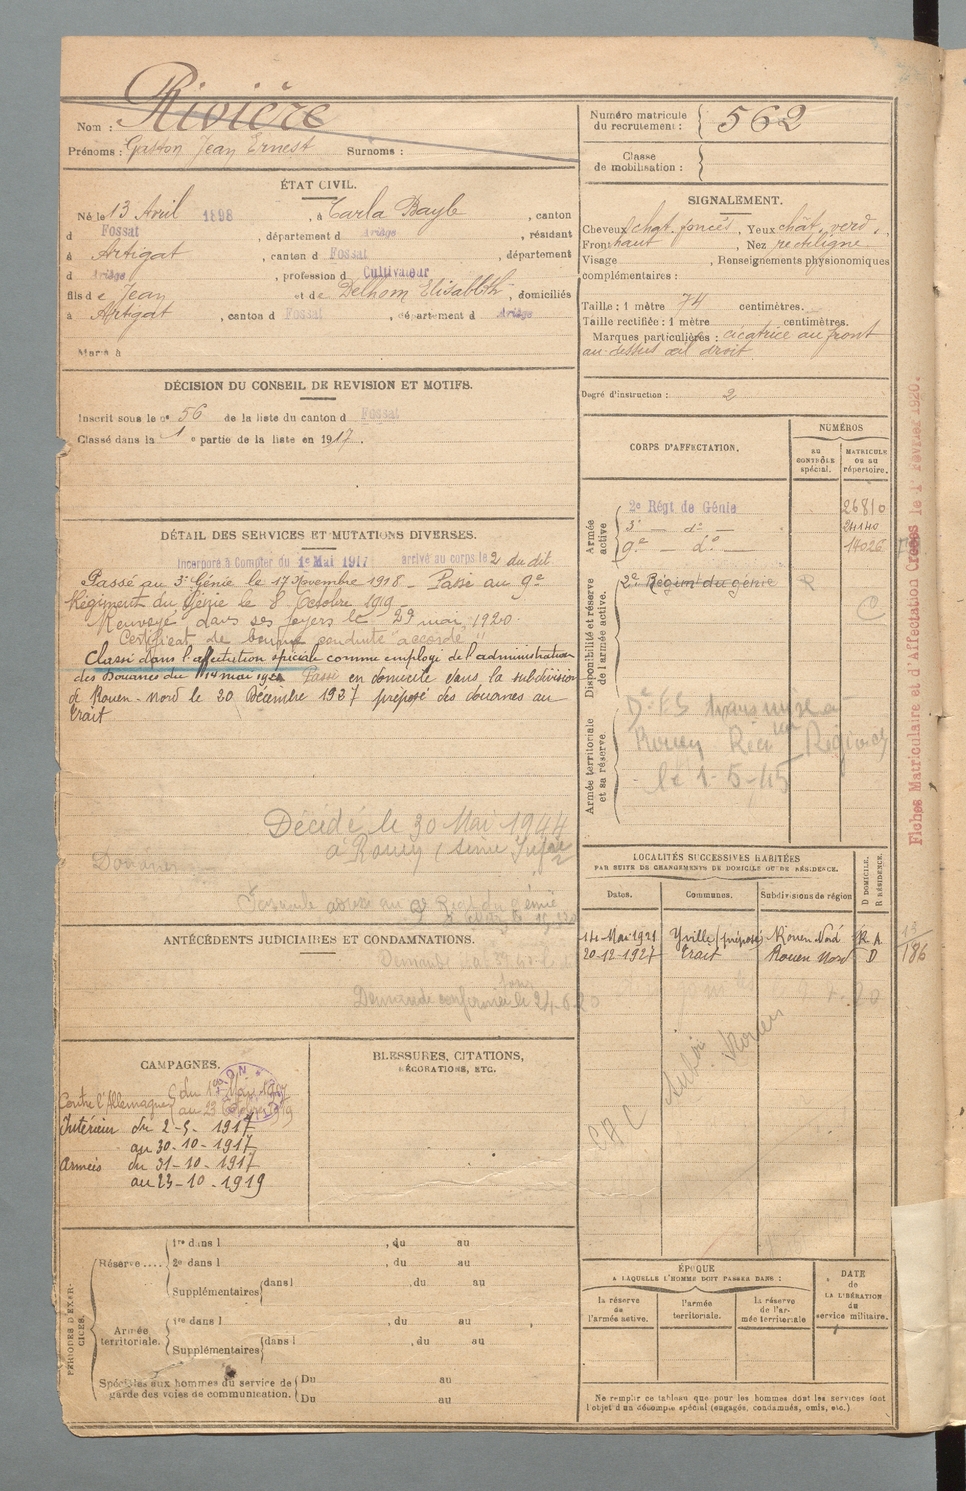 Nom : Rivière
Prénoms : Gaston Jean Ernest Surnoms :
Numéro matricule du recrutement : 562
Classe de mobilisation :
ÉTAT CIVIL.
Né le 13 Avril 1898, à Carla Bayle, canton
d Fossat, département d Ariège, résidant
à Artigat, canton d Fossat, département
d Ariège, profession d Cultivateur
fils de Jean et de Delhom Elisabeth, domiciliés
à Artigat, canton d Fossat, département d Ariège
Marié à
SIGNALEMENT.
Cheveux chat. foncés, Yeux chât. verd.,
Front haut, Nez rectiligne
Visage, Renseignements physionomiques
complémentaires :
Taille : 1 mètre 74 centimètres.
Taille rectifiée : 1 mètre centimètres.
Marques particulières : cicatrice au front
au-dessus œil droit
Degré d'instruction : 2
DÉCISION DU CONSEIL DE REVISION ET MOTIFS.
Inscrit sous le no 56 de la liste du canton d Fossat
Classé dans la 1e partie de la liste en 1917.
CORPS D'AFFECTATION.
NUMÉROS
AU CONTRÔLE spécial.
MATRICULE OU AU répertoire.
Armée active
2e Régt de Génie 26810
3e — do — 24140
9e — do — 14026
Disponibilité et réserve de l'armée active.
2e Régim. du génie
Armée territoriale et sa réserve.
Rouen
le 1-5-45
Fiches Matriculaire et d'Affectation Créées le 1er Février 1920.
DÉTAIL DES SERVICES ET MUTATIONS DIVERSES.
Incorporé à Compter du 1er Mai 1917 arrivé au corps le 2 du dit
Passé au 3e Génie le 17 9vembre 1918 — Passé au 9e
Régiment du Génie le 8 Octobre 1919
Renvoyé dans ses foyers le 29 mai 1920.
Certificat de bonne conduite "accordé"
Classé dans l'affectation spéciale comme employé de l'administration
des Douanes du 14 mai 1921 Passé en domicile dans la subdivision
de Rouen-Nord le 20 Décembre 1927 préposé des douanes au
trait
Décédé le 30 Mai 1944
à Rouen (Seine Infre)
ANTÉCÉDENTS JUDICIAIRES ET CONDAMNATIONS.
Demande confirmée le 24-6-20
LOCALITÉS SUCCESSIVES HABITÉES
PAR SUITE DE CHANGEMENTS DE DOMICILE OU DE RÉSIDENCE.
Dates. Communes. Subdivisions de région D DOMICILE, R RÉSIDENCE.
14-Mai-1921 Yville (préposé) Rouen Nord R. A.
20-12-1927 trait Rouen Nord D
13/186
CAMPAGNES.
Contre l'Allemagne du 1er Mai 1917
au 23 Octobre 1919
Intérieur du 2-5-1917
au 30-10-1917
Armées du 31-10-1917
au 23-10-1919
BLESSURES, CITATIONS,
DÉCORATIONS, ETC.
PÉRIODES D'EXERCICES.
Réserve.... 1re dans l, du au
2e dans l, du au
Supplémentaires dans l, du au
Armée territoriale. 1re dans l, du au
Supplémentaires dans l, du au
Spéciales aux hommes du service de garde des voies de communication. Du au
Du au
ÉPOQUE
A LAQUELLE L'HOMME DOIT PASSER DANS :
la réserve de l'armée active.
l'armée territoriale.
la réserve de l'armée territoriale
DATE de LA LIBÉRATION du service militaire.
Ne remplir ce tableau que pour les hommes dont les services font
l'objet d'un décompte spécial (engagés, condamnés, omis, etc.)